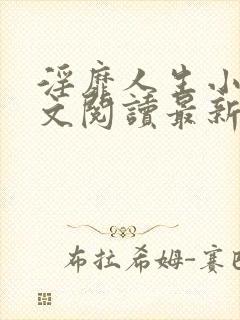 淫靡人生小
文閱讀最新
布拉希姆-賽巴